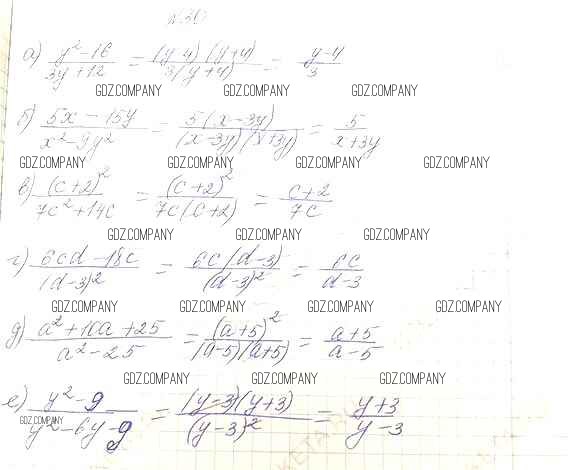 №30
а) (y² - 16)/(3y + 12) = ((y-4)(y+4))/(3(y+4)) = (y-4)/3
GDZ.COMPANY GDZ.COMPANY GDZ.COMPANY
б) (5x - 15y)/(x² - 9y²) = (5(x-3y))/((x-3y)(x+3y)) = 5/(x+3y)
GDZ.COMPANY GDZ.COMPANY GDZ.COMPANY GDZ.COMPANY
в) (c+2)²/(7c² + 14c) = (c+2)²/(7c(c+2)) = (c+2)/(7c)
GDZ.COMPANY GDZ.COMPANY GDZ.COMPANY
г) (6cd - 18c)/(d-3)² = (6c(d-3))/(d-3)² = 6c/(d-3)
GDZ.COMPANY GDZ.COMPANY GDZ.COMPANY GDZ.COMPANY
д) (a² + 10a + 25)/(a² - 25) = (a+5)²/((a-5)(a+5)) = (a+5)/(a-5)
GDZ.COMPANY GDZ.COMPANY GDZ.COMPANY
е) (y² - 9)/(y² - 6y - 9) = ((y-3)(y+3))/(y-3)² = (y+3)/(y-3)
GDZ.COMPANY